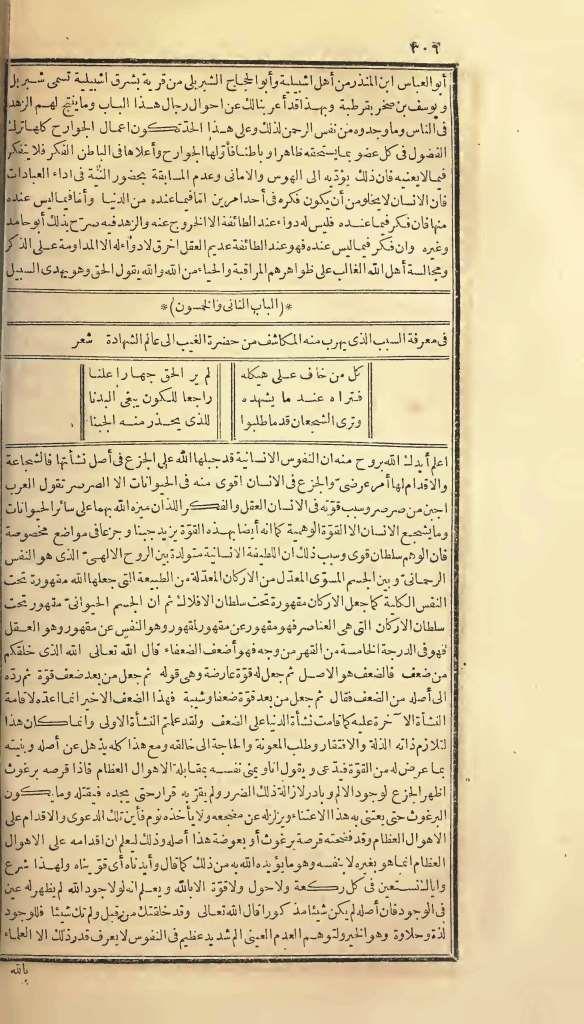 ٤٠٦
أبو العباس ابن المنذر من أهل اشبيلية وأبو الحجاج الشبربلى من قرية بشرق اشبيلية تسمى شبربل
ويوسف بن صخر بقرطبة وبهذا قد أعربنا لك عن احوال رجال هذا الباب وما ينتج لهم الزهد
فى الناس وما وجدوه من نفس الرحمن لذلك وعلى هذا الحد تكون اعمال الجوارح كلها ترك
الفضول فى كل عضو بما يستحقه ظاهرا وباطنا فأولها الجوارح وأعلاها فى الباطن الفكر فلا يتفكر
فيما لا يعنيه فان ذلك يؤديه الى الهوس والامانى وعدم المسابقة بحضور النية فى اداء العبادات
فان الانسان لا يخلو من أن يكون فكره فى أحد امرين اما فيما عنده من الدنيا وأما فيما ليس عنده
منها فان فكر فيما عنده فليس له دواء عند الطائفة الا الخروج عنه والزهد فيه صرح بذلك أبو حامد
وغيره وان فكر فيما ليس عنده فهو عند الطائفة عديم العقل اخرق لا دواء له الا المداومة على الذكر
ومجالسة أهل الله الغالب على ظواهرهم المراقبة والحياء من الله والله يقول الحق وهو يهدى السبيل
*(الباب الثانى والخمسون)*
فى معرفة السبب الذى يهرب منه المكاشف من حضرة الغيب الى عالم الشهادة شعر
كل من خاف على هيكله لم ير الحق جهارا علنا
فتراه عند ما يشهده راجعا للكون يبغى البدنا
وترى الشجعان قدما طلبوا للذى يحذر منه الجبنا
اعلم أيدك الله بروح منه ان النفوس الانسانية قد جبلها الله على الجزع فى أصل نشأتها فالشجاعة
والاقدام لها أمر عرضى والجزع فى الانسان اقوى منه فى الحيوانات الا الصرصر تقول العرب
اجبن من صرصر وسبب قوته فى الانسان العقل والفكر اللذان ميزه الله بهما على سائر الحيوانات
وما يشجع الانسان الا القوة الوهمية كما انه أيضا بهذه القوة يزيد جبنا وجزعا فى مواضع مخصوصة
فان الوهم سلطان قوى وسبب ذلك ان اللطيفة الانسانية متولدة بين الروح الالهى الذى هو النفس
الرحمانى وبين الجسم المسوى المعدل من الاركان المعدلة من الطبيعة التى جعلها الله مقهورة تحت
النفس الكلية كما جعل الاركان مقهورة تحت سلطان الافلاك ثم ان الجسم الحيوانى مقهور تحت
سلطان الاركان التى هى العناصر فهو مقهور عن مقهور لمقهور وهو النفس عن مقهور وهو العقل
فهو فى الدرجة الخامسة من القهر من وجه فهو أضعف الضعفاء قال الله تعالى الله الذى خلقكم
من ضعف فالضعف هو الاصل ثم جعل له قوة عارضة وهى قوله ثم جعل من بعد ضعف قوة ثم رده
الى أصله من الضعف فقال ثم جعل من بعد قوة ضعفا وشيبة فهذا الضعف الاخير انما اعده لاقامة
النشأة الآخرة عليه كما قامت نشأة الدنيا على الضعف ولقد علمتم النشأة الاولى وانما كان هذا
لتلازم ذاته الذلة والافتقار وطلب المعونة والحاجة الى خالقه ومع هذا كله يذهل عن أصله ويتيه
بما عرض له من القوة فيدعى ويقول انا ويمنى نفسه بمقابلة الاهوال العظام فاذا قرصه برغوث
اظهر الجزع لوجود الالم وبادر لازالة ذلك الضرر ولم يقر به قرار حتى يجده فيقتله وما يكون
البرغوث حتى يعتنى به هذا الاعتناء ويزلزله عن مضجعه ولا يأخذه نوم فأين تلك الدعوى والاقدام على
الاهوال العظام وقد فضحته قرصة برغوث أو بعوضة هذا أصله وذلك ليعلم ان اقدامه على الاهوال
العظام انما هو بغيره لا بنفسه وهو ما يؤيده الله به من ذلك كما قال وأيدناه أى قويناه ولهذا شرع
واياك نستعين فى كل ركعة ولا حول ولا قوة الا بالله ويعلم انه لولا جود الله لم يظهر له عين
فى الوجود فان أصله لم يكن شيئا مذكورا قال الله تعالى وقد خلقتك من قبل ولم تك شيئا فللوجود
لذة وحلاوة وهو الخير ولتوهم العدم العينى ألم شديد عظيم فى النفوس لا يعرف قدر ذلك الا العلماء
بالله